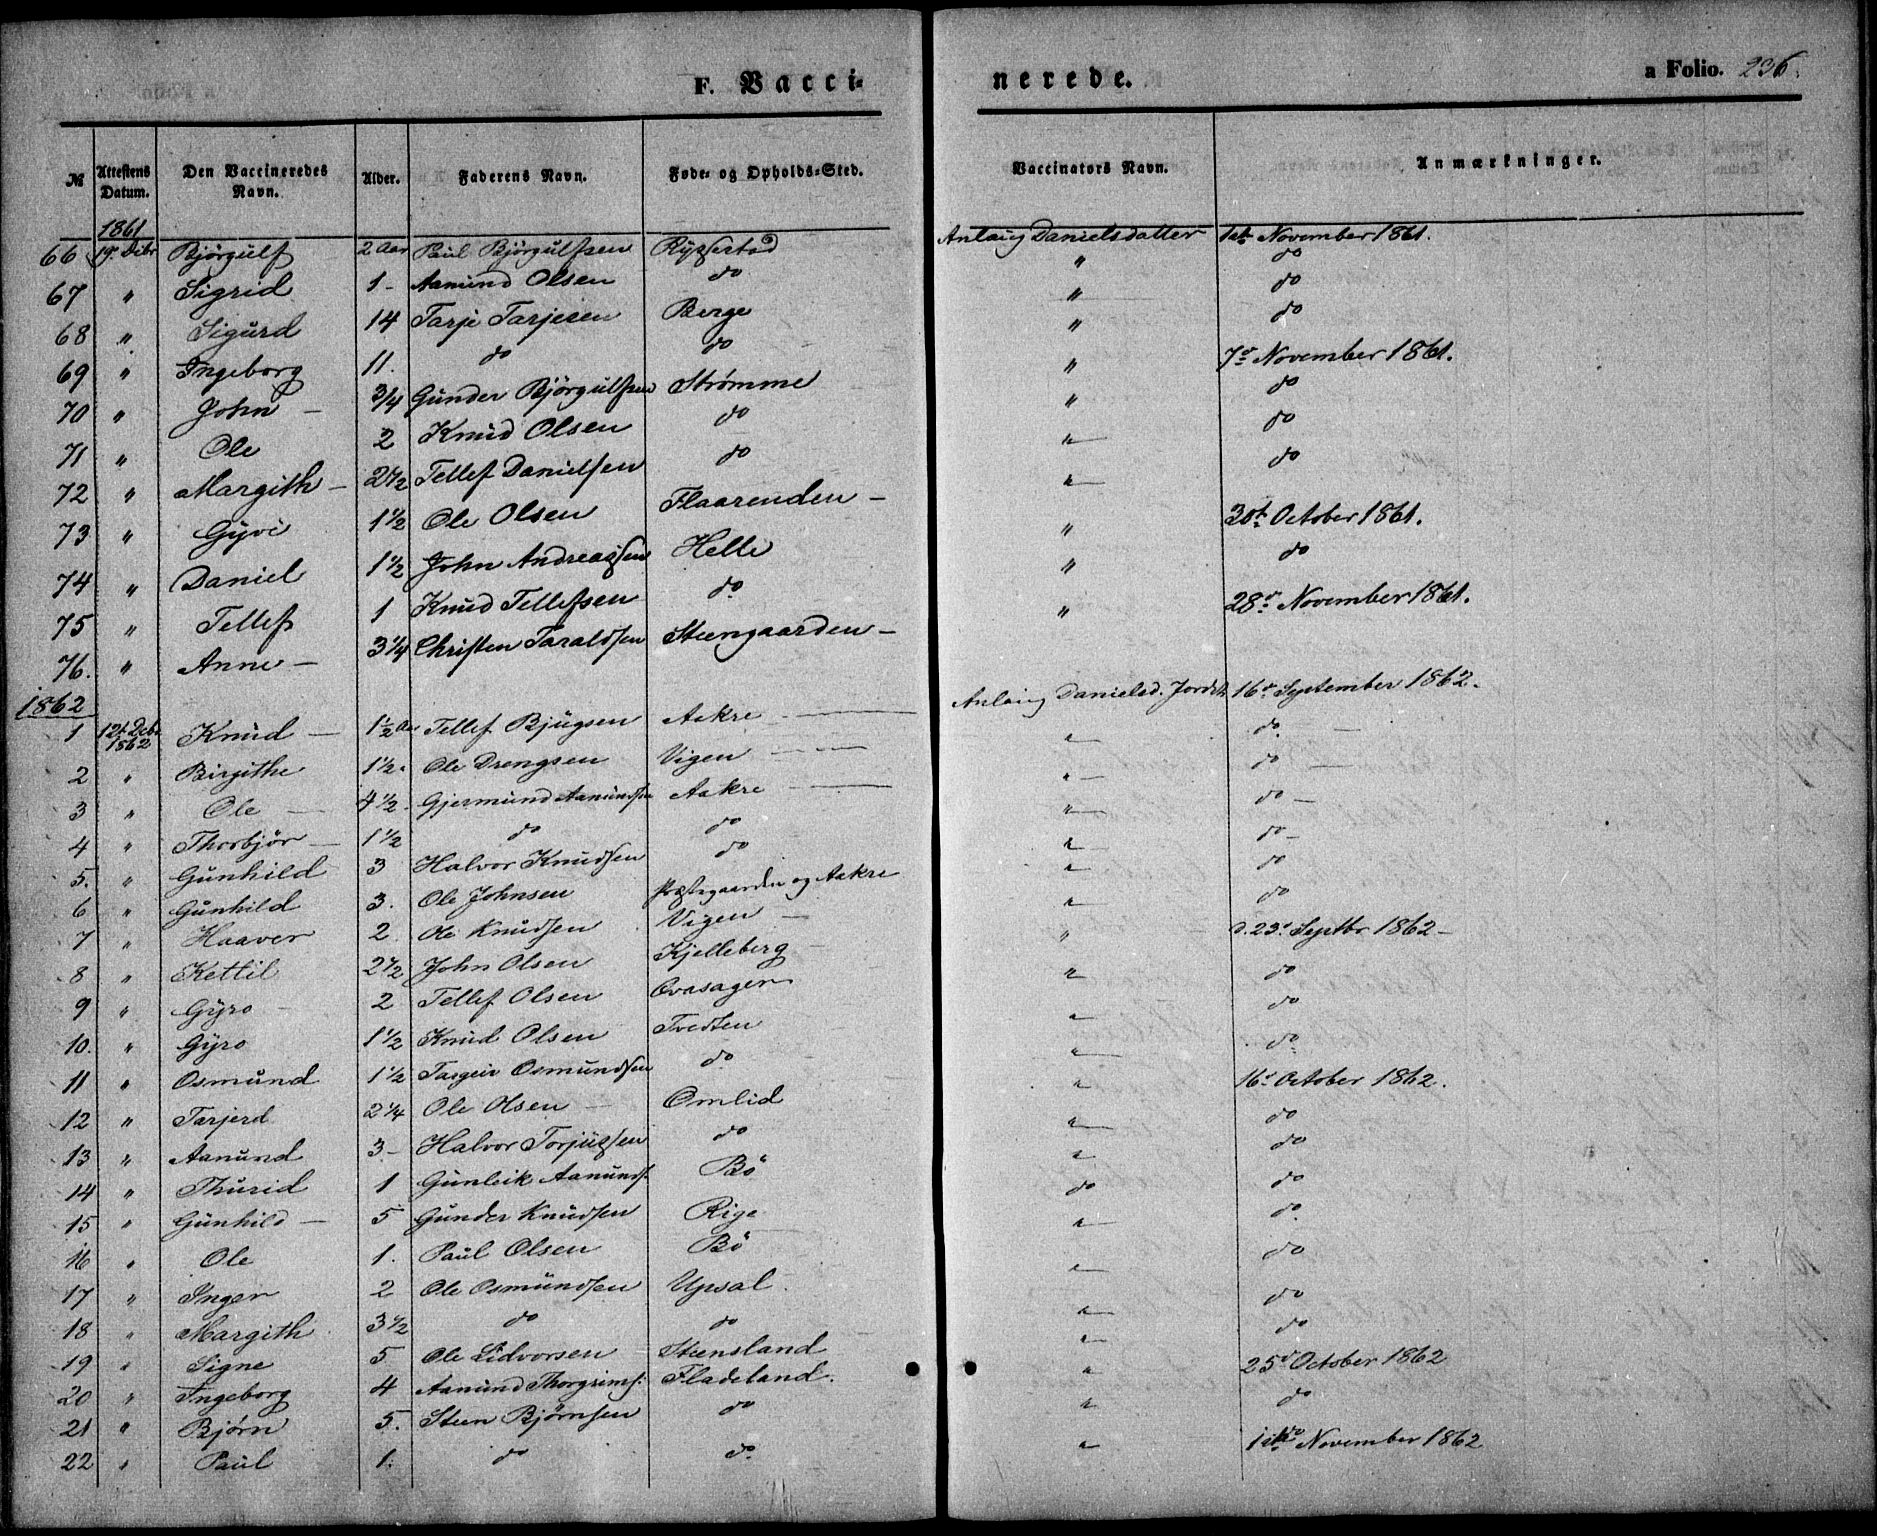 F. Vaccinerede. a Folio. 236.
№ Attestens Datum. Den Vaccineredes Navn. Alder. Faderens Navn. Føde- og Opholds-Sted. Vaccinators Navn. Anmærkninger.
1861
66 19. Debr Bjørgulf 2 Aar Paul Björgulfsen Ryssestad Anlaug Danielsdatter 1ste November 1861.
67 " Sigrid 1 - Aamund Olsen do " do
68 " Sigurd 14 Tarje Tarjesen Berge " do
69 " Ingeborg 11. do do " do
70 " John - 3/4 Gunder Björgulfsen Strømme " 7de November 1861.
71 " Ole 2 Knud Olsen do " do
72 " Margith - 2 1/2 Tellef Danielsen do " do
73 " Gyvi 1 1/2 Ole Olsen Flaarenden - " do
74 " Daniel 1 1/2 John Andreassen Helle " 30te October 1861.
75 " Tellef 1 Knud Tellefsen do " do
76. " Anne - 3 1/4 Christen Taraldsen Steengaarden - " 28de November 1861.
1862
1 12te Debr 1862 Knud - 1 1/2 Aar Tellef Bjugsen Aakre Anlaug Danielsd. 16de September 1862.
2 " Birgithe 1 1/2 " Ole Drengsen Vigen " do
3 " Ole 4 1/2. Gjermund Aanundsen Aakre " do
4 " Thorbjør - 1 1/2 do do " do
5. " Gunhild 3 Halvor Knudsen do " do
6 " Gunhild 3. Ole Johnsen Præstegaarden og Aakre " do
7 " Haaver 2. Ole Knudsen Vigen " do
8 " Kettil 2 1/2 John Olsen Kjelleberg " d. 23de Septbr 1862 -
9 " Gyro 2 Tellef Olsen " do
10. " Gyro 1 1/2 Knud Olsen Tvedten " do
11 " Osmund 1 1/2 Targeir Osmundsen do " do
12 " Tarjerd 2 1/4 Ole Olsen Omlid " 16de October 1862.
13 " Aanund 3 - Halvor Torjussen do " do
14 " Thurid 1 Gunleik Aanunds. Bö do do
15 " Gunhild - 5 Gunder Knudsen Rige " do
16 " Ole 1. Paul Olsen Bö " do
17 " Inger 2 Ole Osmundsen Upsal " do
18 " Margith 3 1/2 do do " do
19 " Signe 5 Ole Lidvorsen Steensland " do
20 " Ingeborg 4 Aanund Thorgrims: Fladeland. " 25de October 1862
21 " Bjørn 5. Steen Bjørnsen do " do
22 " Paul 1. do do. " November 1862